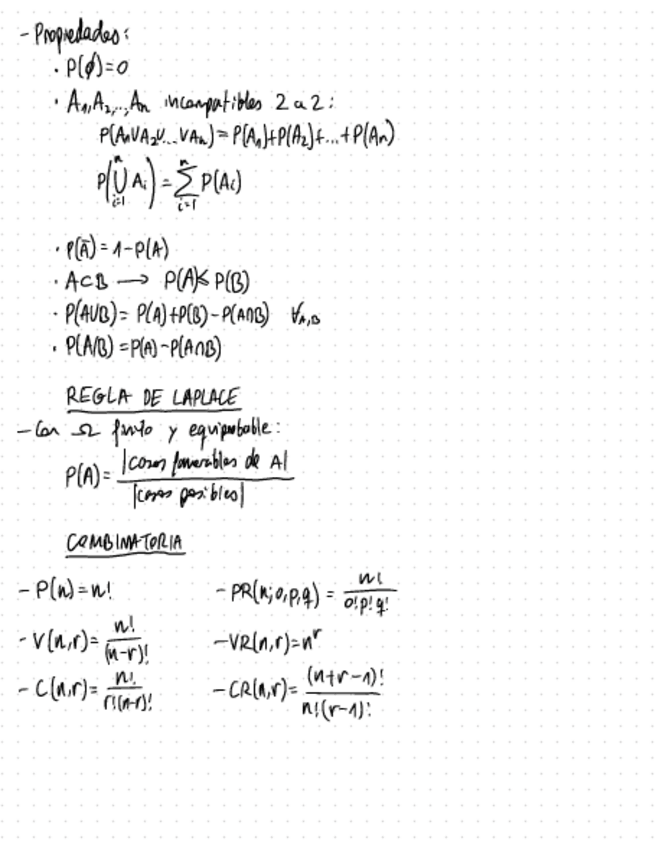 - Propiedades:
· P(∅)=0
· A₁,A₂,..,Aₙ incompatibles 2 a 2:
P(A₁∪A₂∪...∪Aₙ)=P(A₁)+P(A₂)+...+P(Aₙ)
P(⋃ᵢ₌₁ⁿ Aᵢ)=∑ᵢ₌₁ⁿ P(Aᵢ)
· P(Ā)=1-P(A)
· A⊂B → P(A)≤P(B)
· P(A∪B)= P(A)+P(B)-P(A∩B) ∀A,B
· P(A/B)=P(A)-P(A∩B)
REGLA DE LAPLACE
- Con Ω finito y equiprobable:
P(A)= |casos favorables de A| / |casos posibles|
COMBINATORIA
- P(n)=n! - PR(n;o,p,q) = n! / o!p!q!
- V(n,r)= n! / (n-r)! - VR(n,r)=nʳ
- C(n,r)= n! / r!(n-r)! - CR(n,r)= (n+r-1)! / n!(r-1)!